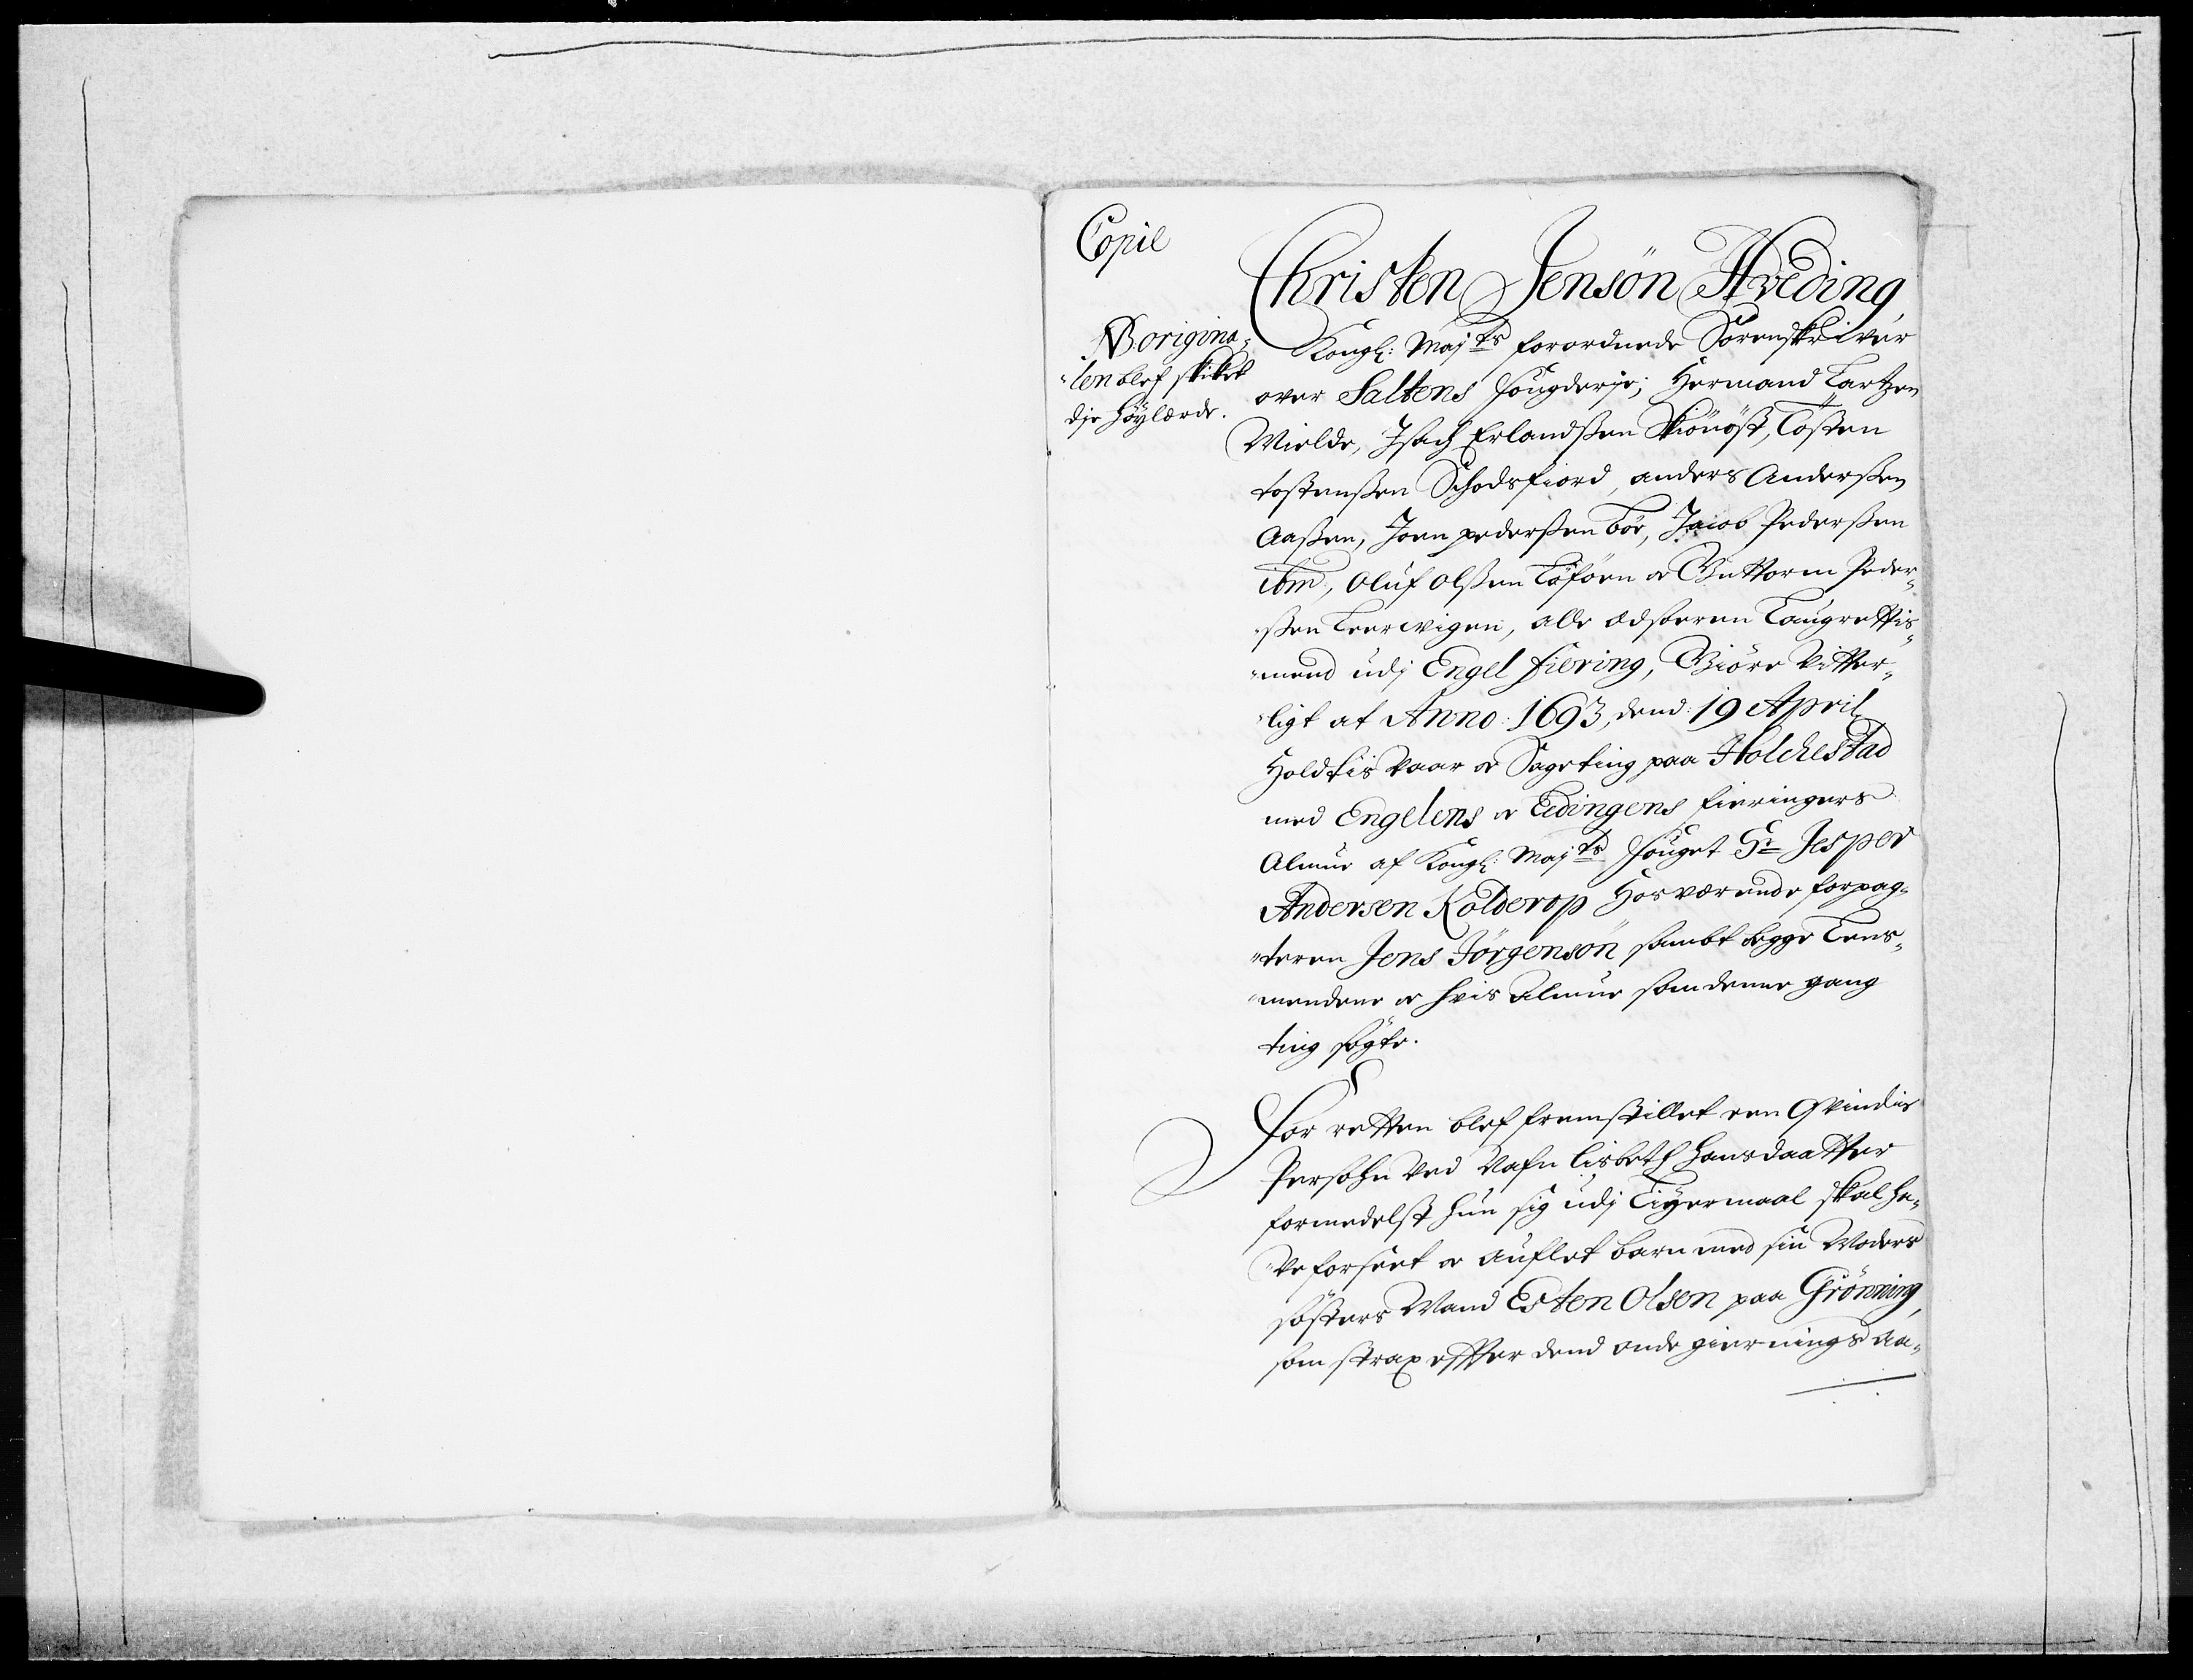 Copie
NB origina-
"len blef skiket
die Höylærde.
Christen Jensøn Hveding
Kongl: Maj:ts forordnede Sorenskriver
over Saltens fougderje, Hermand Lartzen
Mielde, Isach Erlandssen Skiönöst, Tosten
tostenssen Schodsfiord, anders Anderssen
Aassen, Joen pederssen bøe, Jacob Pederssen
ibm, Oluf olssen Løføen & Guttorm Peder-
"ssen Leervigen, alle Edsoren Laugrettis-
"mend udj Engel fiering, Giøre Vitter-
"ligt at Anno: 1693, dend 19 April
Holdtis Vaar & Sageting paa Holchestad
med Engelens & Eedingens fieringers
Almue af Kongl: Maj:ts fouget Sr Jesper
Andersen Kolderop Hosværende forpag-
"teren Jens Jörgensön sambt begge Lens-
"mendene & hvis Almue som denne gang
ting søgte.
For retten blef fremstillet een Qvindis
Persohn ved Nafn Lisbeth Hansdaatter
formedelst hun sig udj Leyermaal skal ha-
"ve forseet & Auflet barn med sin Moders
søsters Mand Esten Olsen paa Grönning,
som strax effter dend onde giernings aa-